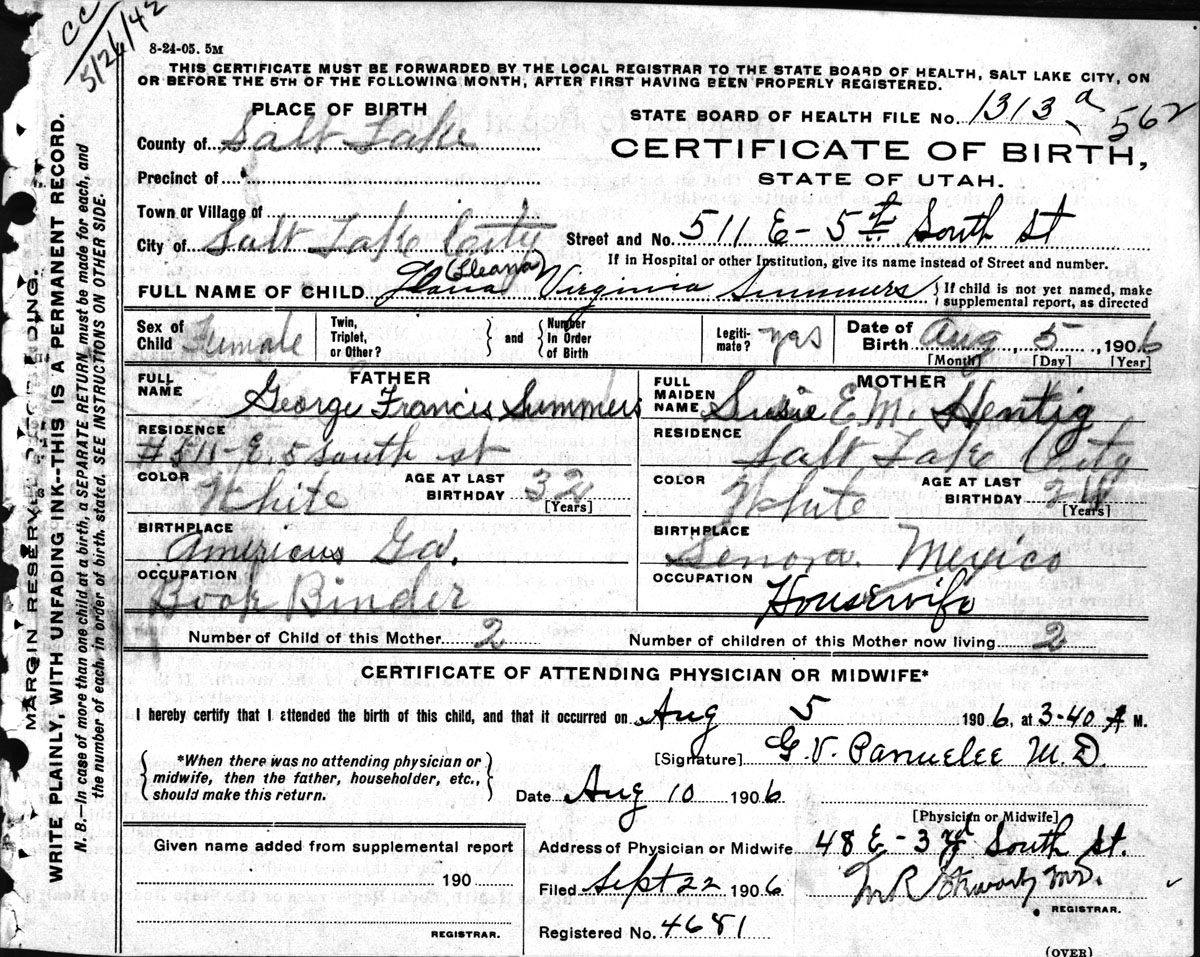 CC
5/26/42
8-24-05. 5M
THIS CERTIFICATE MUST BE FORWARDED BY THE LOCAL REGISTRAR TO THE STATE BOARD OF HEALTH, SALT LAKE CITY, ON
OR BEFORE THE 5TH OF THE FOLLOWING MONTH, AFTER FIRST HAVING BEEN PROPERLY REGISTERED.
PLACE OF BIRTH
STATE BOARD OF HEALTH FILE No. 1313 a 562
County of Salt Lake
CERTIFICATE OF BIRTH,
Precinct of
STATE OF UTAH.
Town or Village of
City of Salt Lake City
Street and No. 511 E - 5th South St
If in Hospital or other Institution, give its name instead of Street and number.
(Eleana)
FULL NAME OF CHILD Virginia Summers
If child is not yet named, make
supplemental report, as directed
Sex of Child Female
Twin, Triplet, or Other?
and
Number In Order of Birth
Legiti-mate? yes
Date of Birth Aug 5, 1906
[Month] [Day] [Year]
FATHER
FULL NAME George Francis Summers
RESIDENCE
#511-E. 5 South st
COLOR White
AGE AT LAST BIRTHDAY 32
[Years]
BIRTHPLACE
Americus Ga.
OCCUPATION
Book Binder
MOTHER
FULL MAIDEN NAME Susie E. M. Hentig
RESIDENCE
Salt Lake City
COLOR White
AGE AT LAST BIRTHDAY
[Years]
BIRTHPLACE
Senora. Mexico
OCCUPATION
Housewife
Number of Child of this Mother 2
Number of children of this Mother now living 2
CERTIFICATE OF ATTENDING PHYSICIAN OR MIDWIFE*
I hereby certify that I attended the birth of this child, and that it occurred on Aug 5 1906, at 3-40 A M.
*When there was no attending physician or
midwife, then the father, householder, etc.,
should make this return.
[Signature] G. V. M.D.
Date Aug 10 1906
[Physician or Midwife]
Given name added from supplemental report
190
REGISTRAR.
Address of Physician or Midwife 48 E - 3rd South St.
Filed Sept 22 1906
M.D.
REGISTRAR.
Registered No. 4681
(OVER)
MARGIN RESERVED FOR BINDING.
WRITE PLAINLY, WITH UNFADING INK--THIS IS A PERMANENT RECORD.
N. B.—In case of more than one child at a birth, a SEPARATE RETURN must be made for each, and
the number of each, in order of birth, stated. SEE INSTRUCTIONS ON OTHER SIDE.